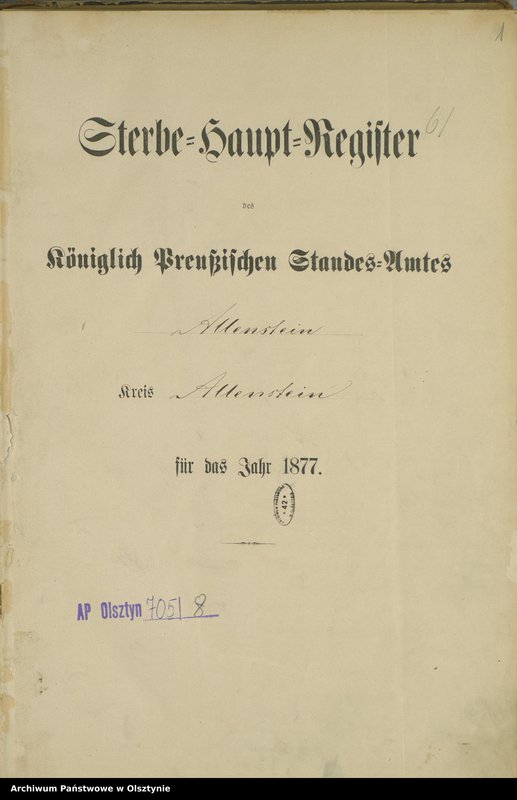 1
61
Sterbe-Haupt-Register
des
Königlich Preußischen Standes-Amtes
Allenstein
Kreis Allenstein
für das Jahr 1877.
* 42 *
AP Olsztyn 705/8
Archiwum Państwowe w Olsztynie